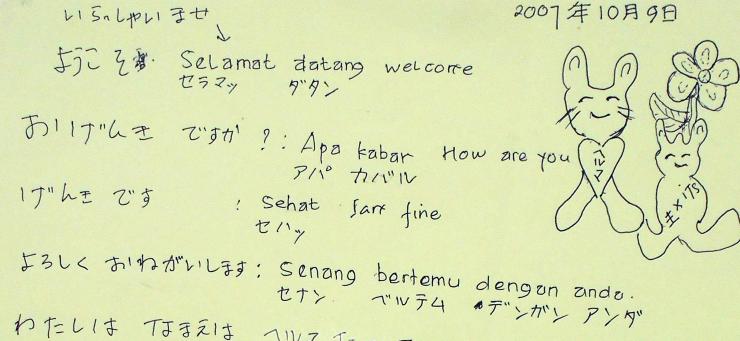 いらっしゃいませ
2007年10月9日
ようこそ Selamat datang welcome
セラマッ ダタン
おりげんき ですか ?: Apa kabar How are you
アパ カバル
ヘルマ
げんき です : Sehat fine
セハッ
よろしく おねがいします: Senang bertemu dengan anda.
セナン ベルテム デンガン アンダ
わたしは なまえは